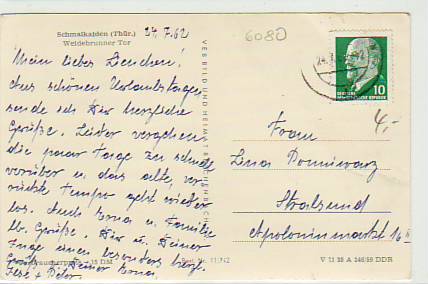 Schmalkalden (Thür.)
Weidebrunner Tor
24.7.62
Mein liebes Lenchen!
Aus schönen Urlaubstagen
sende ich Dir herzliche
Grüße. Leider vergehen
die paar Tage zu schnell
vorüber u. das alte, ver-
rückte Tempo geht wieder
los. Auch Erna u. Familie
lb. Grüße. Dir u. Deiner
einen besonders herzl.
Gruß Deine Erna
VEB BILD UND HEIMAT REICHENBACH
Best. Nr. 11/742
6080
DEUTSCHE DEMOKRATISCHE REPUBLIK
10
4,-
Frau
Lena
Stralsund
Apolonienmarkt 16
V 11 28 A 246/59 DDR